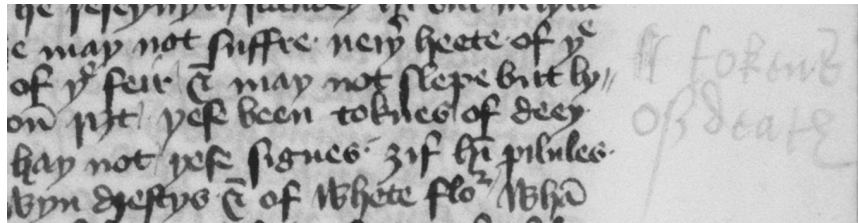 e may not suffre· neiþʳ heete of þᵉ
of þᵉ feir & may not slepe but ly〃
þese been toknes of deeþ·
haþ not þese signes· ȝif hī pilules·
wyn & of whete floʳ Whā
tokens
of death